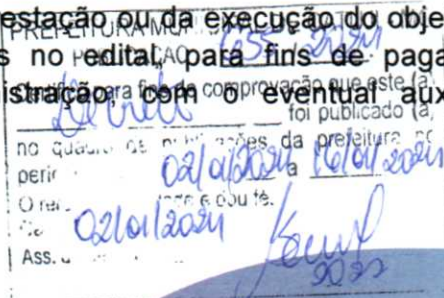 estação ou da execução do obje
PREFEITURA MU
s no edital, para fins de paga
istração, com o eventual aux
para fins de comprovação que este (a)
foi publicado (a)
no quadro de publicações da prefeitura no
02/01/2024 a 16/01/2024
e dou fé.
02/01/2024
Ass.